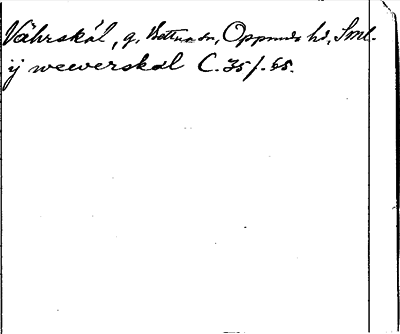 Vährskål, g, Bottna sn, Oppunda hd, Sml.
ij weewerskal C. 35/. 65.